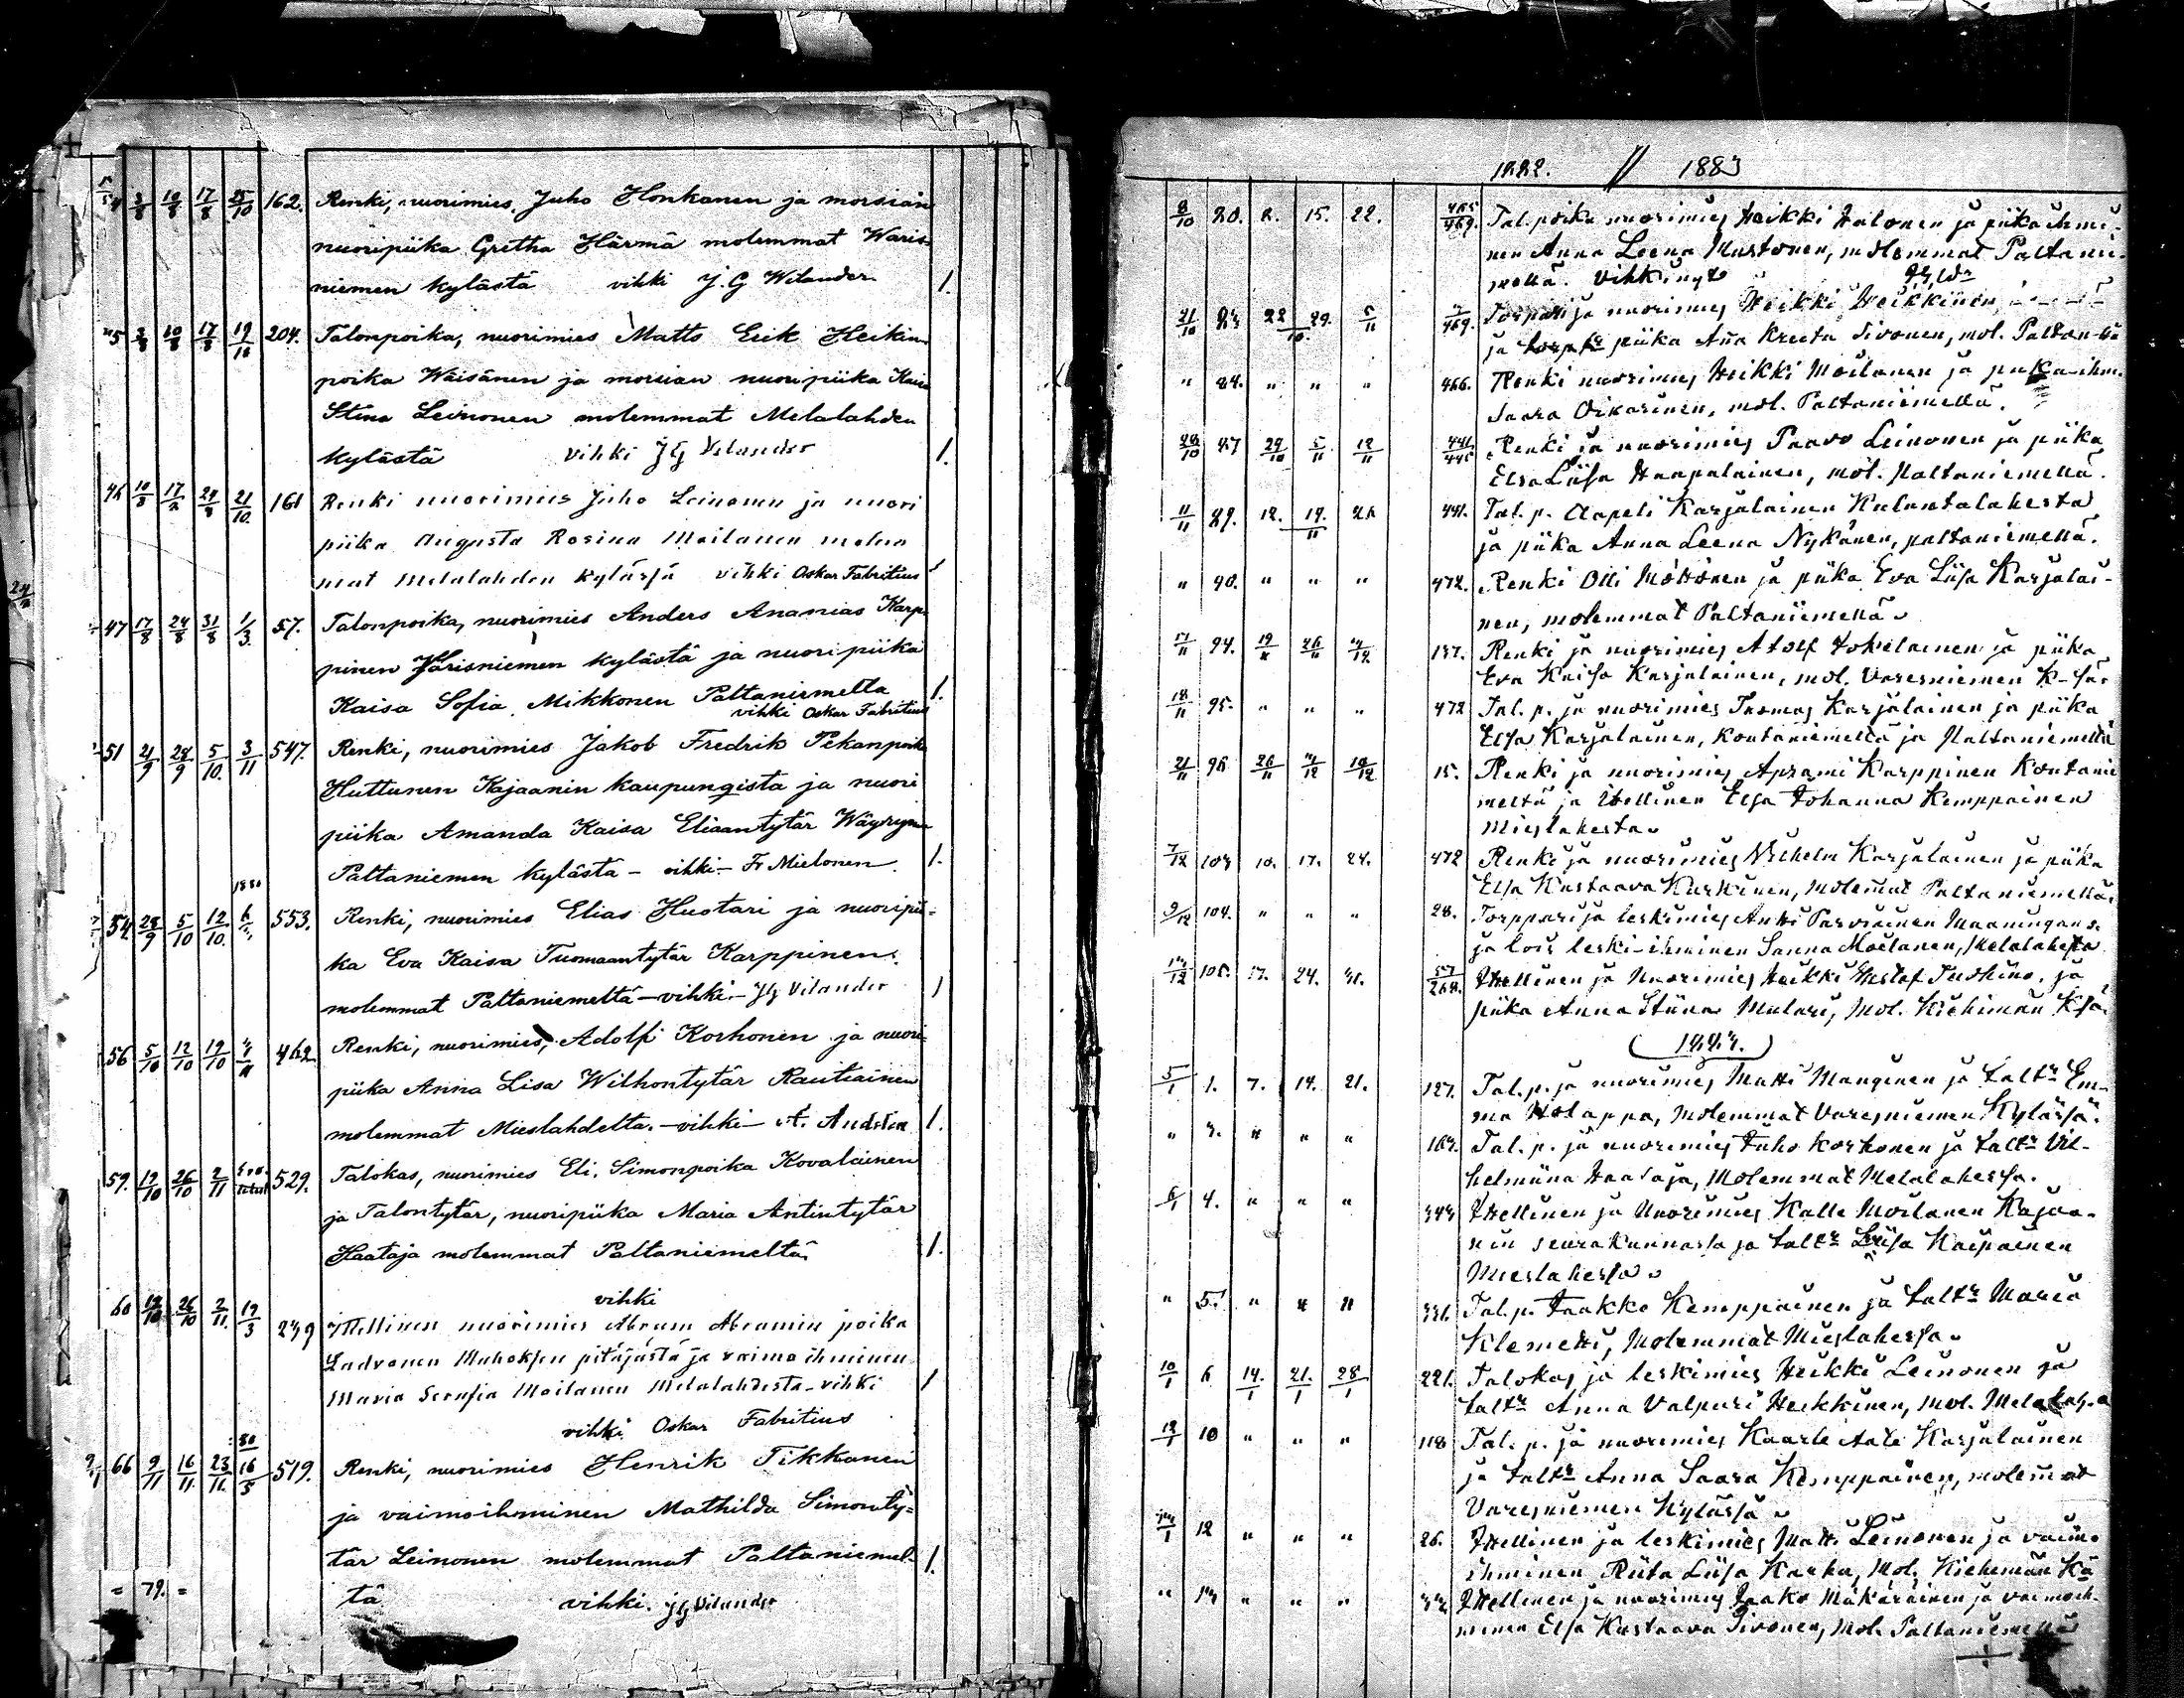 4 3/8 10/8 17/8 25/10 162. Renki, nuorimies, Juho Honkanen ja morsian
nuoripiika Gretha Härmä molemmat Waris-
niemen kylästä vihki J. G Wilander 1.
45 3/8 10/8 17/8 19/10 204. Talonpoika, nuorimies Matts Erik Heikin
poika Wäisänen ja morsian nuoripiika Kaisa
Stina Leinonen molemmat Melalahden
kylästä vihki JG Vilander 1.
46 10/8 17/8 24/8 21/10. 161 Renki nuorimies Juho Leinonen ja nuori
piika Augusta Rosina Moilanen molem
mat Melalahden kylässä vihki Oskar Fabritius
47 17/8 24/8 31/8 1/3. 57. Talonpoika, nuorimies Anders Ananias Karp-
pinen Varisniemen kylästä ja nuoripiika
Kaisa Sofia Mikkonen Paltaniemelta 1.
vihki Oskar Fabritius
51 21/9 28/9 5/10. 3/11 547. Renki, nuorimies Jakob Fredrik Pekanpoika
Huttunen Kajaanin kaupungista ja nuori
piika Amanda Kaisa Eliaantytär Wäyrynen
Paltaniemen kylästä - vihki - Fr Mielonen. 1.
1880
54 28/9 5/10 12/10. 553. Renki, nuorimies Elias Huotari ja nuoripii-
ka Eva Kaisa Tuomaantytär Karppinen.
molemmat Paltaniemeltä - vihki - JG Vilander 1
56 5/10 12/10 19/10 462 Renki, nuorimies, Adolf Korhonen ja nuori-
piika Anna Lisa Wilhontytär Rautiainen
molemmat Mieslahdelta. - vihki - A. Andelin 1.
59. 19/10 26/10 2/11 529. Talokas, nuorimies Eli. Simonpoika Kovalainen
ja Talontytär, nuoripiika Maria Antintytär
Haataja molemmat Paltaniemeltä 1.
vihki
60 19/10 26/10 2/11. 19/3 239 Itellinen nuorimies Abram Abramin poika
Ladvonen Muhoksen pitäjästä ja vaimo ihminen
Maria Serafia Moilanen Melalahdesta - vihki 1
vihki Oskar Fabritius
80
66 9/11 16/11. 23/11. 16/5 519. Renki, nuorimies Henrik Tikkanen
ja vaimoihminen Mathilda Simonty-
tär Leinonen molemmat Paltaniemel- 1.
= 79. = tä vihki. JG Vilander
1882. // 1883
8/10 80. 8. 15. 22. 465/469. Tal. poika nuorimies Heikki Halonen ja piika ihmi-
nen Anna Leena Mustonen, molemmat Paltanie-
mellä. Vihkinyt
21/10 83 22 29. 5/11 469. Torppari ja nuorimies Heikki Heikkinen
ja piika Anna Kreeta Sivonen, mol. Paltan-
" 84. " " " 466. Renki nuorimies Heikki Moilanen ja piika-ihm.
Saara Oikarinen, mol. Paltaniemellä.
28/10 87 29/10 5/11 12/11 441/445 Renki ja nuorimies Paavo Leinonen ja piika
Elsa Liisa Haapalainen, mol. Paltaniemellä.
11/11 89. 12. 19. 26 441. Tal. p. Aapeli Karjalainen Kuluntalahesta
ja piika Anna Leena Nykänen, paltaniemellä.
" 90. " " " 472. Renki Olli Möttönen ja piika Eva Liisa Karjalai-
nen, molemmat Paltaniemellä.
17/11 94. 19/11 26/11 3/12. 137. Renki ja nuorimies Atolf Tokelainen ja piika
Eva Kaisa Karjalainen, mol. Varesniemen K-sä.
18/11 95. " " " 472 Tal. p. ja nuorimies Tuomas Karjalainen ja piika
Elsa Karjalainen, Koutaniemellä ja Paltaniemellä
21/11 96 26/11 3/12 10/12 15. Renki ja nuorimies Aprami Karppinen Koutanie
meltä ja Itellinen Elsa Johanna Kemppainen
Mieslahesta.
7/12 103 10. 17. 24. 472 Renki ja nuorimies Vilhelm Karjalainen ja piika
Elsa Kustaava Kurkinen, Molemmat Paltaniemellä.
9/12 104. " " " 28. Torppari ja leskimies Antti Parviainen Maaningans.
ja lois leski-ihminen Sanna Moilanen, Melalahesta
105. 17. 24. 31. 57/268. Itellinen ja Nuorimies Heikki Kustaf Tuohino, ja
piika Anna Stiina Mulari, Mol. Kiehimän Ksä.
(1883.)
5/1 1. 7. 14. 21. 127. Tal. p. ja nuorimies Matti Manginen ja taltr Em-
ma Holappa, Molemmat Varesniemen Kylässä.
" 3. " " " 163. Tal. p. ja nuorimies Juho Korhonen ja taltr Vil-
helmiina Haataja, Molemmat Melalahessa.
6/1 4. " " " 343 Itellinen ja Nuorimies Kalle Moilanen Kajaa-
nin seurakunnassa ja taltr Liisa Haipainen
Mieslahessa.
" 5. " " " 331. Tal. p. Jaakko Kemppainen ja taltr Maria
Klemetti, Molemmat Mieslahessa.
10/1 6 14/1. 21/1. 28/1 221. Talokas ja leskimies Heikki Leinonen ja
taltr Anna Valpuri Heikkinen, mol. Melalah.
12/1 10 " " " 118 Tal. p. ja nuorimies Kaarle Aate Karjalainen
ja taltr Anna Saara Kemppainen, molemmat
Varesniemen Kylässä.
13/1 12 " " " 26. Itellinen ja leskimies Matti Leinonen ja vaimo
ihminen Riita Liisa Karhu, Mol. Kiehemän Kä
" 13 " " " 33 Itellinen ja nuorimies Jaako Mäkäräinen ja vaimoih-
minen Elsa Kustaava Sivonen, Mol. Paltaniemellä